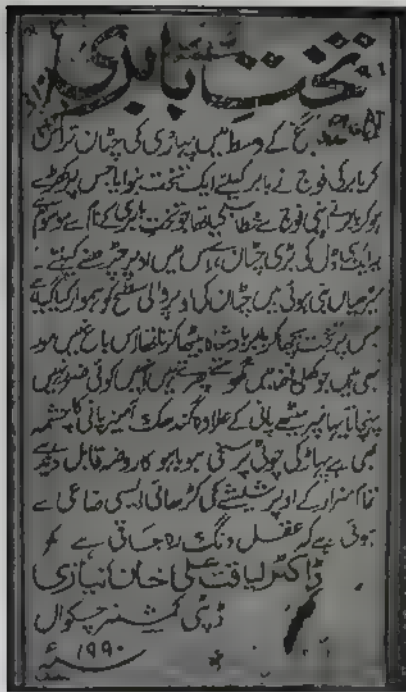 تختِ بابری
باغ کے وسط میں پہاڑی کی چٹان تراش
کر بابر کی فوج نے بابر کیلئے ایک تخت بنوایا جس پر کھڑے
ہو کر بابر نے اپنی فوج سے خطاب کیا تھا جو تخت بابری کے نام سے موسوم
ہے کی بڑی چٹان ہے اس میں اوپر چڑھنے کیلئے
سیڑھیاں بنی ہوئی ہیں چٹان کی اوپر والی سطح کو ہموار کیا گیا ہے
جس پر تخت بچھا کر بابر بادشاہ بیٹھا کرتا تھا اس باغ میں مور
بھی ہیں جو کھلی فضا میں گھومتے پھرتے ہیں انہیں کوئی ضرر نہیں
پہنچاتا یہاں پر میٹھے پانی کے علاوہ گندھک آمیز پانی کا چشمہ
بھی ہے پہاڑ کی چوٹی پر سخی ہو باہو کا روضہ قابل دید ہے
تمام مزار کے اوپر شیشے کی کڑھائی ایسی صناعی سے
ہوئی ہے کہ عقل دنگ رہ جاتی ہے
ڈاکٹر لیاقت علی خان نیازی
ڈپٹی کمشنر چکوال
۱۹۹۰ء